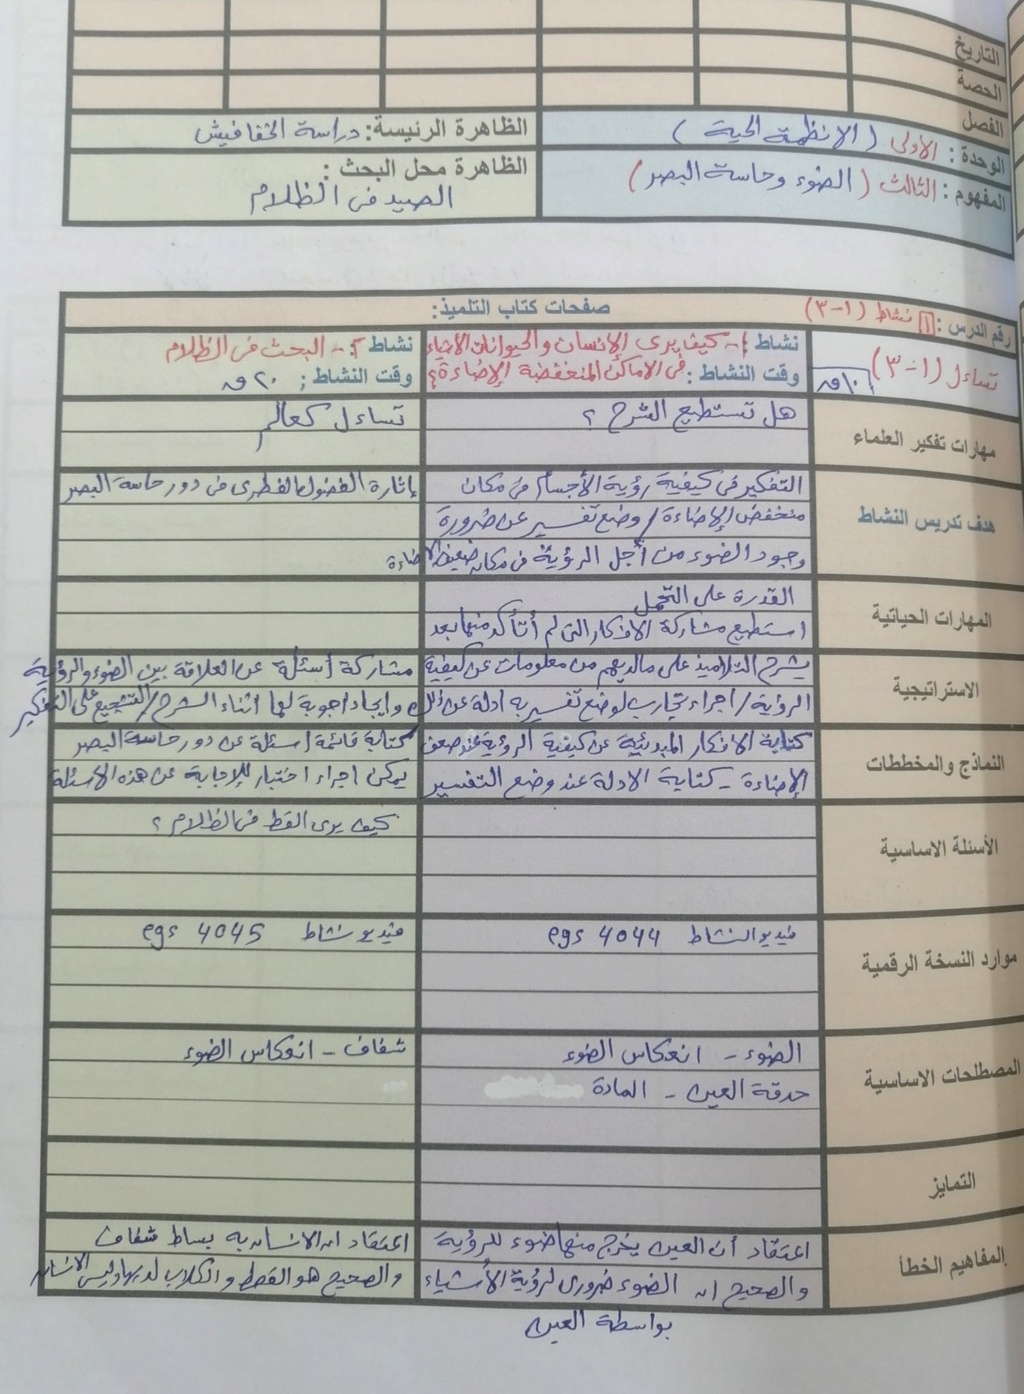 التاريخ
الحصة
الفصل
الوحدة : الأولى ( الانظمة الحية )
الظاهرة الرئيسة: دراسة الخفافيش
المفهوم : الثالث ( الضوء وحاسة البصر )
الظاهرة محل البحث :
الصيد فى الظلام
رقم الدرس : 1 نشاط (١-٣)
صفحات كتاب التلميذ:
تساءل (١-٣)
١٠ق
نشاط ١- كيف يرى الإنسان والحيوانات الأشياء
وقت النشاط : فى الاماكن المنخفضة الإضاءة؟
نشاط ٢- البحث فى الظلام
وقت النشاط : ٢٠ ق
مهارات تفكير العلماء
هل تستطيع الشرح ؟
تساءل كعالم
هدف تدريس النشاط
التفكير فى كيفية رؤية الأجسام فى مكان
منخفض الإضاءة / وضع تفسير عن ضرورة
وجود الضوء من أجل الرؤية فى مكان ضعيف الاضاءة
إثارة الفضول الفطرى فى دور حاسة البصر
المهارات الحياتية
القدرة على التحمل
استطيع مشاركة الافكار التى لم أتأكد منها بعد
الاستراتيجية
يشرح التلاميذ على مالديهم من معلومات عن كيفية
الرؤية / اجراء تجارب لوضع تفسير به ادلة عن ذلك
مشاركة أسئلة عن العلاقة بين الضوء والرؤية
وايجاد اجوبة لها أثناء الشرح / التشجيع على التفكير
النماذج والمخططات
كتابة الافكار المبدئية عن كيفية الرؤية عند ضعف
الإضاءة - كتابة الادلة عند وضع التفسير
كتابة قائمة اسئلة عن دور حاسة البصر
يمكن اجراء اختبار للإجابة عن هذه الاسئلة
الأسئلة الاساسية
كيف يرى القط فى الظلام ؟
موارد النسخة الرقمية
فيديو النشاط egs 4044
فيديو نشاط egs 4045
المصطلحات الاساسية
الضوء - انعكاس الضوء
حدقة العين - المادة
شفاف - انعكاس الضوء
التمايز
المفاهيم الخطأ
اعتقاد أن العين يخرج منها ضوء للرؤية
والصحيح ان الضوء ضرورى لرؤية الأشياء
بواسطة العين
اعتقاد ان الانسان به بساط شفاف
والصحيح هو القطط والكلاب لديها وليس الانسان